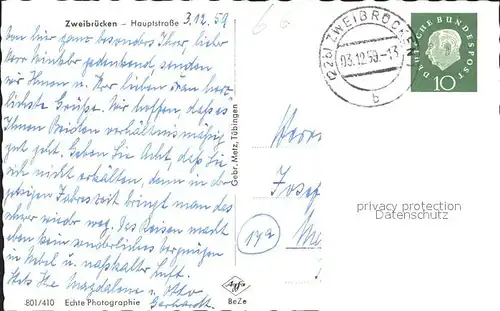 Zweibrücken – Hauptstraße 3.12.59
Von hier ganz besonders Ihrer, lieber
Herr Winkler gedenkend, senden
wir Ihnen u. Ihrer lieben Frau herz-
lichste Grüße. Wir hoffen, daß es
Ihnen Beiden verhältnismäßig
gut geht. Geben Sie Acht, daß Sie
sich nicht erkälten, denn in der
jetzigen Jahreszeit bringt man das
schwer wieder weg. Das Reisen macht
eben kein sonderliches Vergnügen
in Nebel u. naßkalter Luft.
Stets Ihre Magdalena u. Otto
Gerhardt.
801/410 Echte Photographie
Gebr. Metz, Tübingen
Agfa
BeZe
(22b) ZWEIBRÜCKEN
03.12.59.-13
b
DEUTSCHE BUNDESPOST
10
Herrn
Josef
17a
privacy protection
Datenschutz